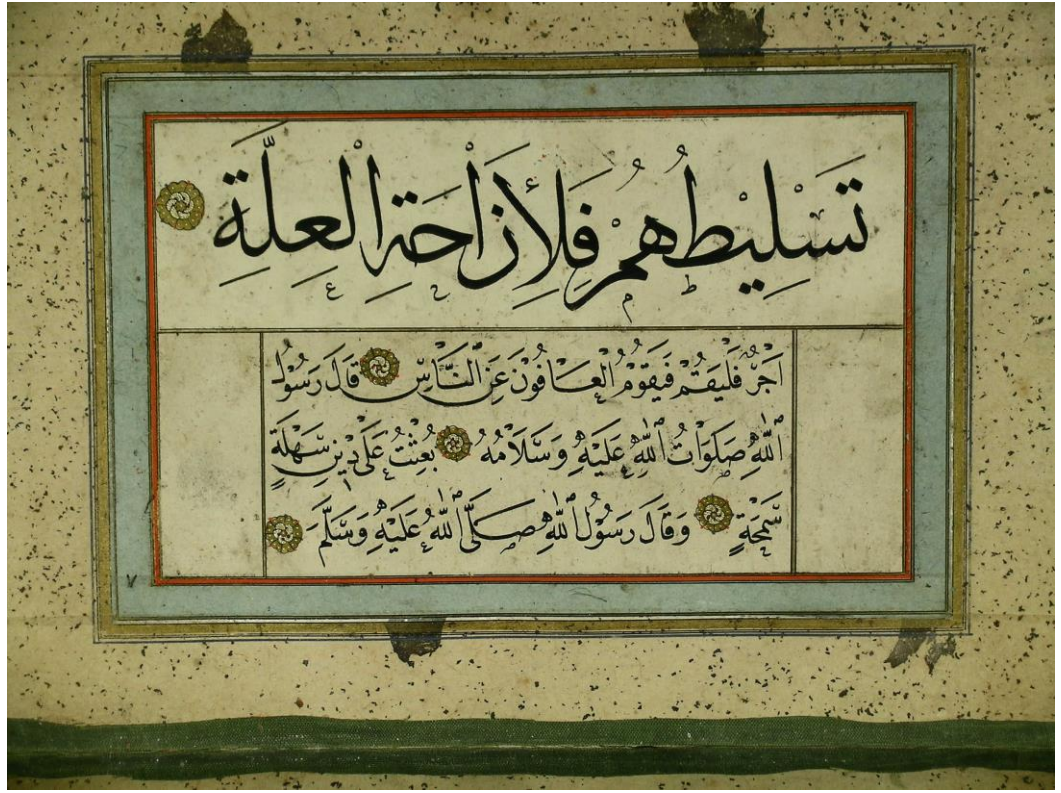 تَسْلِيْطُهُمْ فَلِأِزَاْحَةِ الْعِلَّةِ
اَجْرٌ فَلْيَقُمْ فَيَقُوْمُ الْعَافُوْنَ عَنِ النَّاسِ قَالَ رَسُوْلُ
اللّٰهِ صَلَوَاتُ اللّٰهِ عَلَيْهِ وَسَلَامُهُ بُعِثْتُ عَلٰى دِيْنٍ سَهْلَةٍ
سَمْحَةٍ وَقَالَ رَسُوْلُ اللّٰهِ صَلَّى اللّٰهُ عَلَيْهِ وَسَلَّمَ
٧